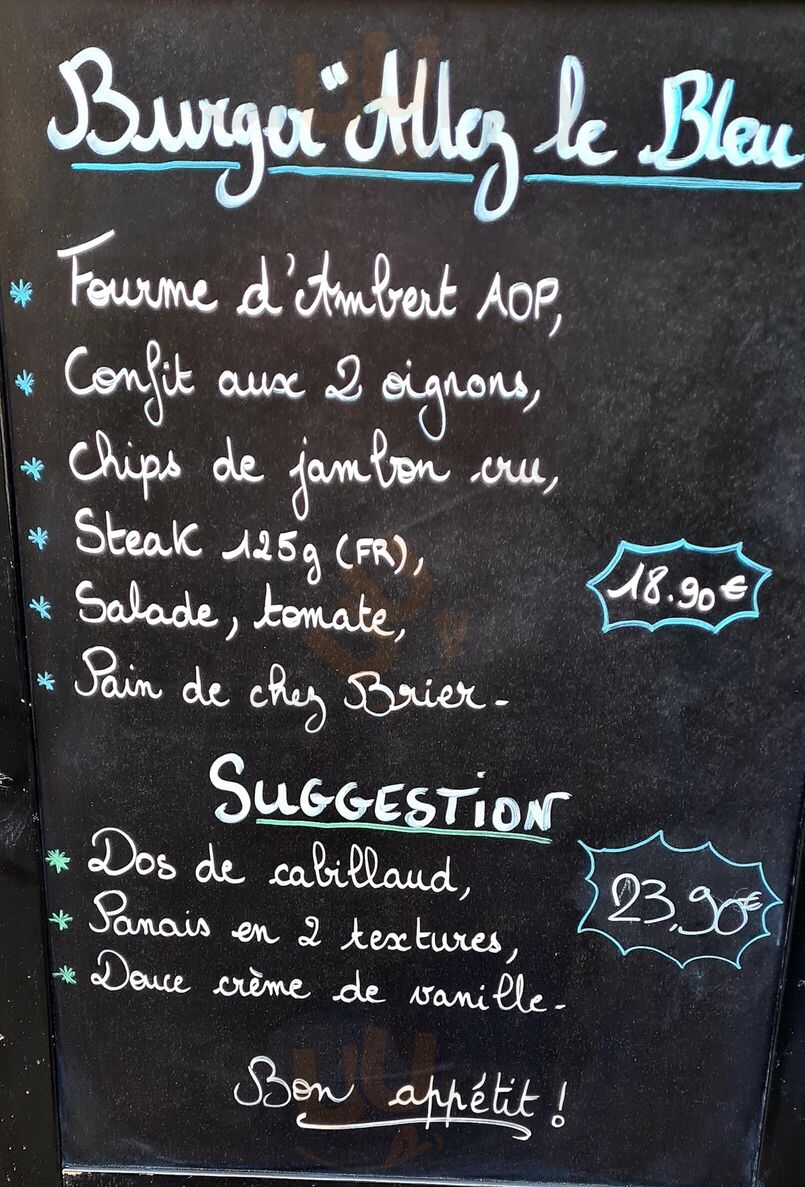 Burger "Allez le Bleu
* Fourme d'Ambert AOP,
* Confit aux 2 oignons,
* Chips de jambon cru,
* Steak 125g (FR),
* Salade, tomate,
18.90€
* Pain de chez Brier -
SUGGESTION
* Dos de cabillaud,
* Panais en 2 textures,
23,90€
* Douce crème de vanille -
Bon appétit !